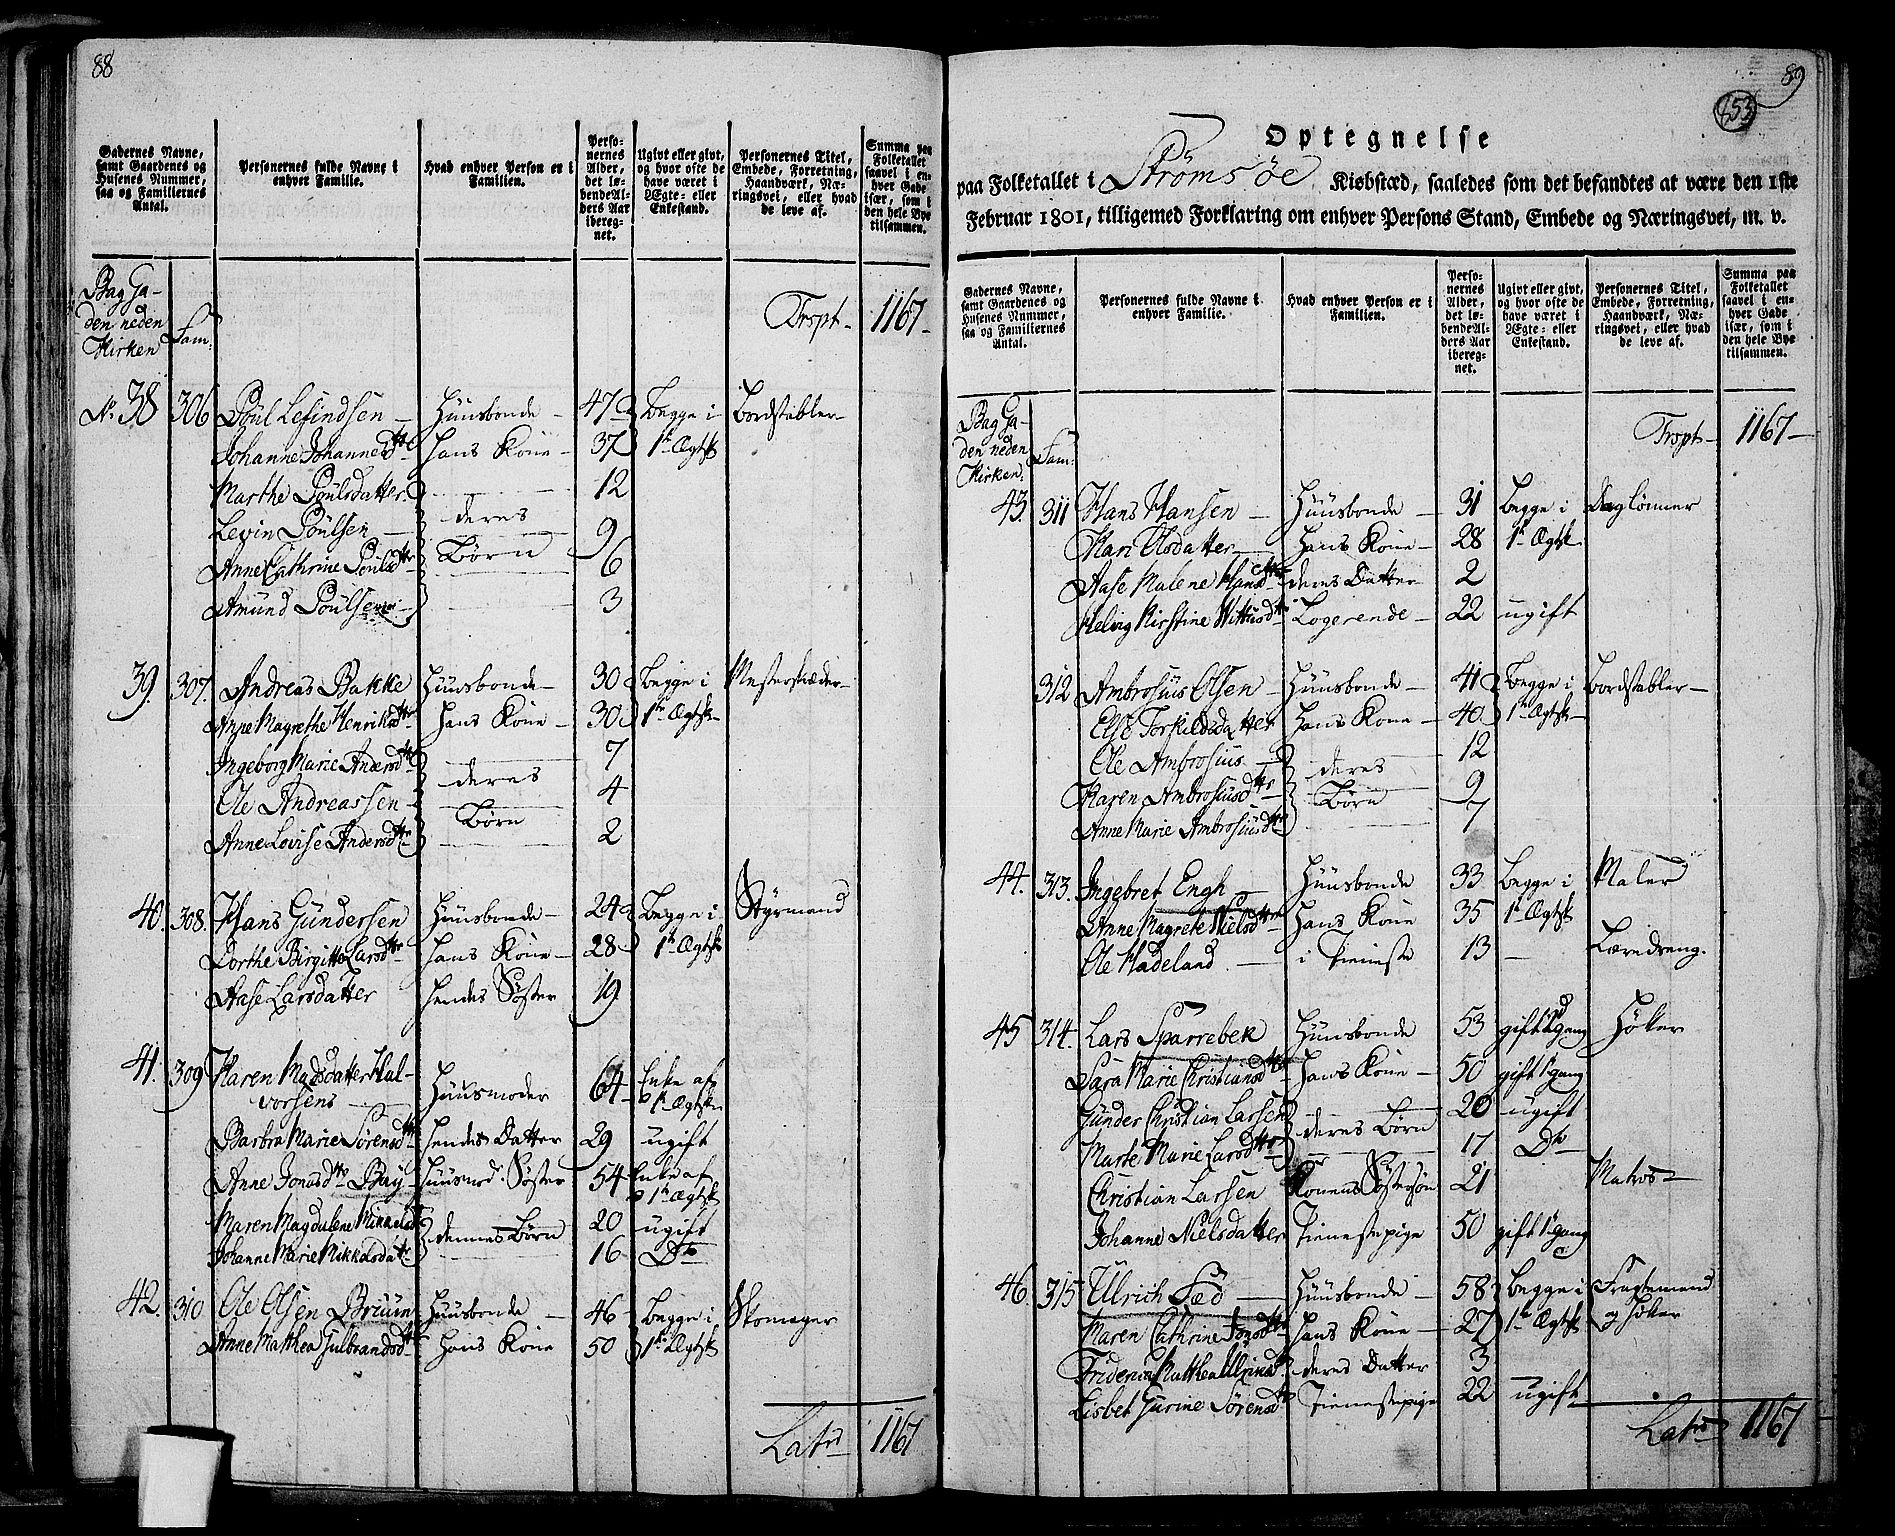 88
Gadernes Navne, samt Gaardenes og Husenes Nummer, saa og Familiernes Antal.
Personernes fulde Navne i enhver Familie.
Hvad enhver Person er i Familien.
Personernes Alder, det løbendeAlders Aar iberegnet.
Ugivt eller givt, og hvor ofte de have været i Ægte- eller Enkestand.
Personernes Titel, Embede, Forretning, Haandværk, Næringsvei, eller hvad de leve af.
Summa paa Folketallet saavel i enhver Gade især, som i den hele Bye tilsammen.
Bag Ga-
den neden
Kirken Fam: Trspt 1167
No 38 306 Poul Lefindsen Huusbonde 47 Begge i Bordstabler
Johanne Johannesdtr Hans Kone 37 1te Ægtsk
Marthe Poulsdatter 12
Levin Poulsen deres 9
Anne Cathrine Poulsdtr Børn 6
Amund Poulsen 3
39. 307. Andreas Bakke Huusbonde 30 Begge i Mesterskræder
Anne Magrethe Henriksdtr Hans Kone 30 1te Ægtsk
Ingeborg Marie Andersdtr 7
Ole Andreassen deres 4
Anne Lovise Andersdtr Børn 2
40. 308. Hans Gundersen Huusbonde 24 Begge i Styrmand
Dorthe Birgitte Larsdtr Hans Kone 28 1te Ægtsk
Aase Larsdatter Hendes Søster 19
41. 309 Karen Madsdatter Hal-
vorsens Huusmoder 64 Enke af 1te Ægtsk
Barbra Marie Sørensdtr Hendes Datter 29 ugift
Anne Jonasdtr Bay Huusmod. Søster 54 Enke af 1te Ægtsk
Maren Magdalene Mikkelsdtr dennes Børn 20 ugift
Johanne Marie Mikkelsdatter 16 Do
42. 310 Ole Olsen Bruun Huusbonde 46 Begge i Skomager
Anne Matthea Gulbrandsdtr Hans Kone 50 1te Ægtsk
Latus 1167
89
153
Optegnelse
paa Folketallet i Strømsøe Kiøbstæd, saaledes som det befandtes at være den 1ste
Februar 1801, tilligemed Forklaring om enhver Persons Stand, Embede og Næringsvei, m. v.
Gadernes Navne, samt Gaardenes og Husenes Nummer, saa og Familiernes Antal.
Personernes fulde Navne i enhver Familie.
Hvad enhver Person er i Familien.
Personernes Alder, det løbendeAlders Aar iberegnet.
Ugivt eller givt, og hvor ofte de have været i Ægte- eller Enkestand.
Personernes Titel, Embede, Forretning, Haandværk, Næringsvei, eller hvad de leve af.
Summa paa Folketallet saavel i enhver Gade især, som i den hele Bye tilsammen.
Bag Ga-
den neden
Kirken. Fam: Trspt 1167
43. 311 Hans Hansen Huusbonde 31 Begge i Daglønner
Kari Olsdatter Hans Kone 28 1te Ægtsk
Aase Malene Hansdtr deres Datter 2
Helvig Kirstine Wittusdtr Logerende 22 ugift
312 Ambrosius Olsen Huusbonde 41 Begge i Bordstabler
Else Torkildsdatter Hans Kone 40 1te Ægtsk
Ole Ambrosius 12
Karen Ambrosiusdtr deres 9
Anne Marie Ambrosiusdtr Børn 7
44. 313. Ingebret Engh Huusbonde 33 Begge i Maler
Anne Magrete Nielsdtr Hans Kone 35 1te Ægtsk
Ole Hadeland i Tieneste 13 Læredreng.
45 314. Lars Sparrebek Huusbonde 53 gift 2d gang Høker
Sara Marie Christiansdtr Hans Kone 50 gift 1te gang
Gunder Christian Larsen deres Børn 20 ugift
Marte Marie Larsdtr 17 Do
Christian Larsen Konens Søstersøn 21 Matros
Johanne Nielsdatter Tienestepige 50 gift 1te gang
46. 315 Ullrich Sæd Huusbonde 58 Begge i Fragtemand
Maren Cathrine Hans Kone 27 1te Ægtsk og Høker
Friderica Mathea Ulrichsdtr deres Datter 3
Lisbet Gurine Sørensdtr Tienestepige 22 ugift
Latus 1167